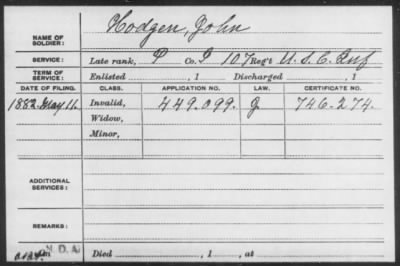 Hodgen, John
NAME OF SOLDIER:
SERVICE: Late rank, P Co. I 107 Reg't U. S. C. Inf
TERM OF SERVICE: Enlisted , 1 Discharged , 1
DATE OF FILING. CLASS. APPLICATION NO. LAW. CERTIFICATE NO.
1882 May 11. Invalid, 449.099. G 746.274.
Widow,
Minor,
ADDITIONAL SERVICES:
REMARKS:
Died , 1 , at